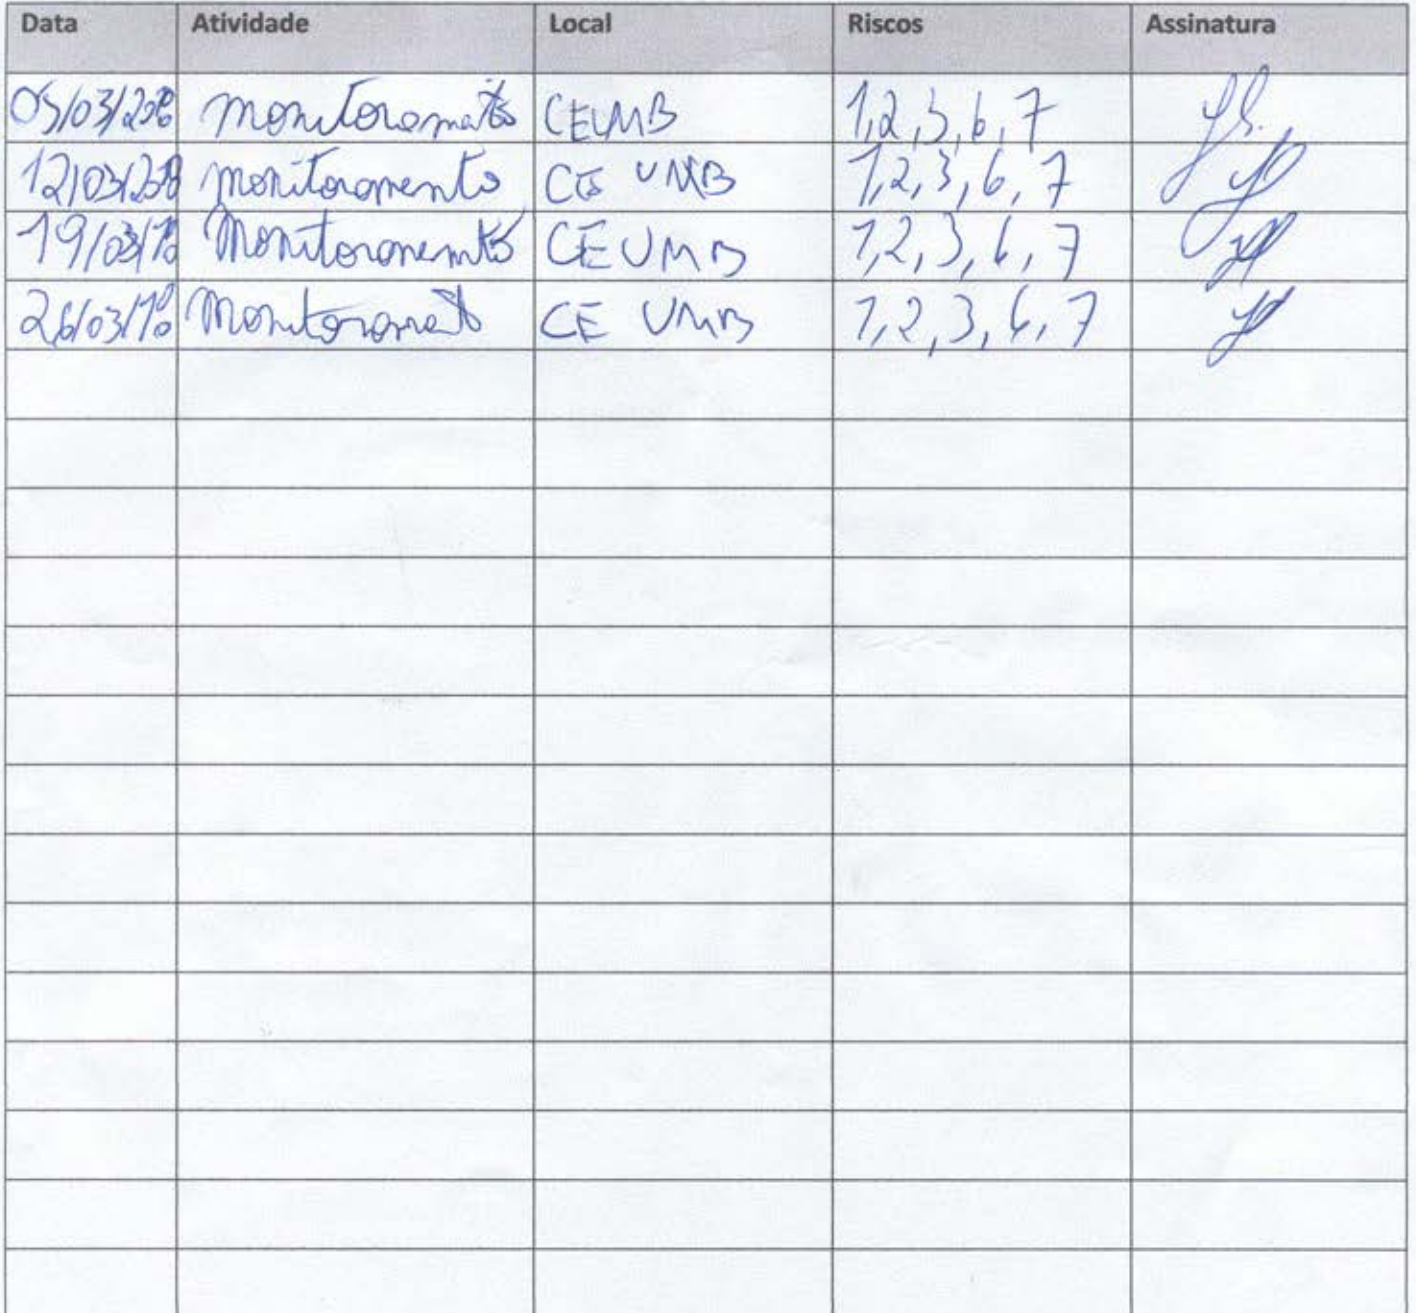 Data Atividade Local Riscos Assinatura
monitoramento CEUMB 1,2,3,6,7
monitoramento CE UMB 1,2,3,6,7
19/03/18 Monitoramento CEUMB 1,2,3,6,7
26/03/18 Monitoramento CE UMB 1,2,3,6,7